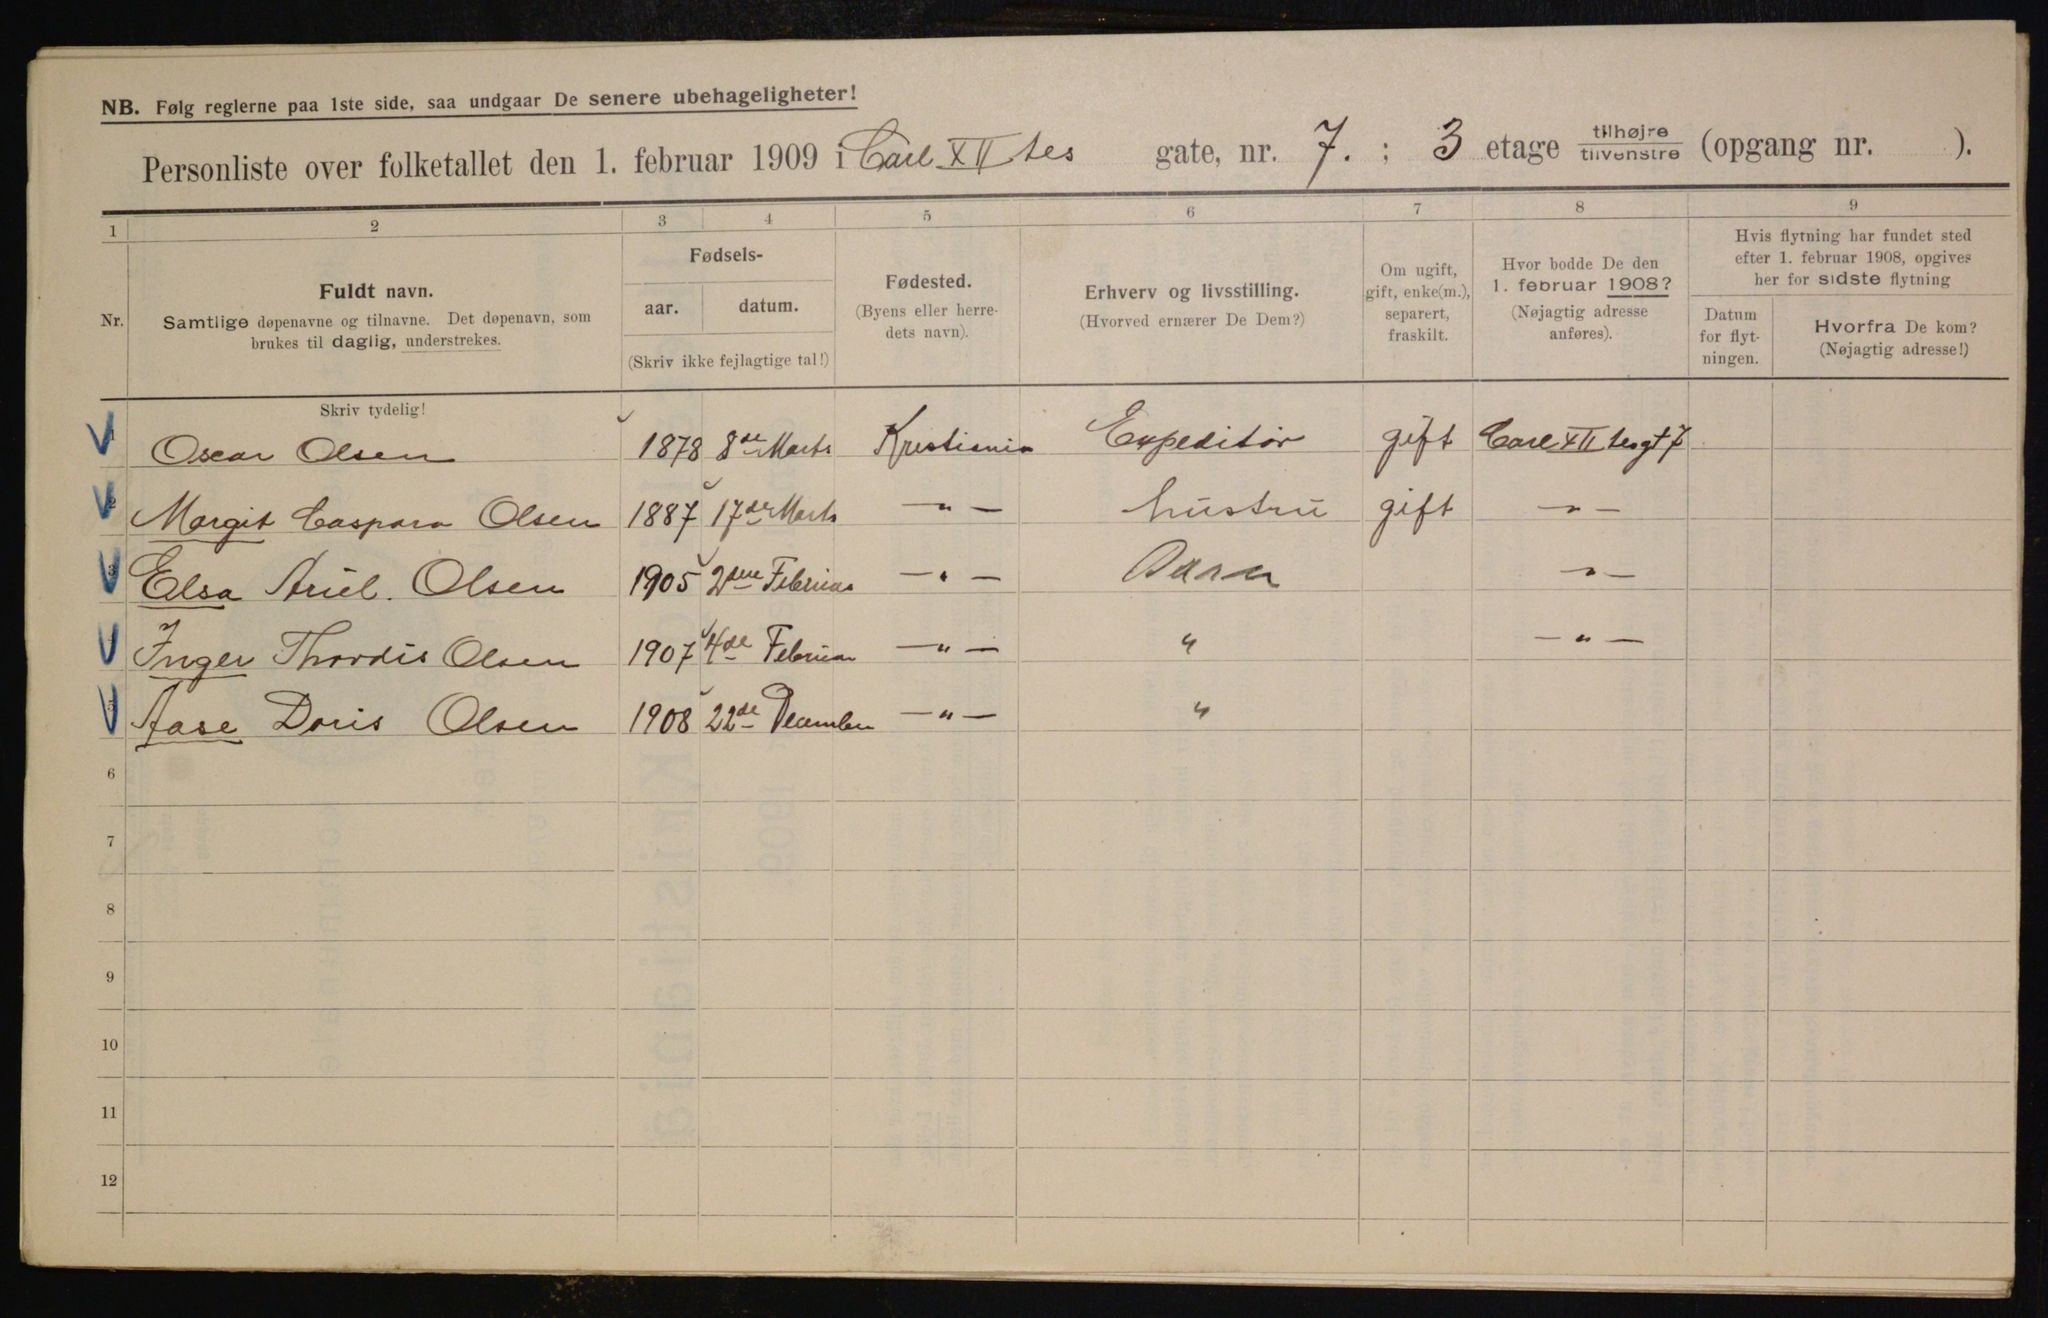 NB. Følg reglerne paa 1ste side, saa undgaar De senere ubehageligheter!
Personliste over folketallet den 1. februar 1909 i Carl XII tes gate, nr. 7. ; 3 etage tilhøjre/tilvenstre (opgang nr. ).
1 2 3 4 5 6 7 8 9
Nr. Fuldt navn. Samtlige døpenavne og tilnavne. Det døpenavn, som brukes til daglig, understrekes.
Fødsels- aar. datum. (Skriv ikke fejlagtige tal!)
Fødested. (Byens eller herredets navn).
Erhverv og livsstilling. (Hvorved ernærer De Dem?)
Om ugift, gift, enke(m.), separert, fraskilt.
Hvor bodde De den 1. februar 1908? (Nøjagtig adresse anføres).
Hvis flytning har fundet sted efter 1. februar 1908, opgives her for sidste flytning
Datum for flytningen.
Hvorfra De kom? (Nøjagtig adresse!)
Skriv tydelig!
1 Oscar Olsen 1878 8de Marts Kristiania Expeditør gift Carl XII tesgt 7
2 Margit Caspara Olsen 1887 17de Marts —"— hustru gift —"—
3 Elsa Ariel. Olsen 1905 2den Februar —"— Barn —"—
4 Inger Thordis Olsen 1907 4de Februar —"— " —"—
5 Aase Doris Olsen 1908 22de December —"— "
6
7
8
9
10
11
12